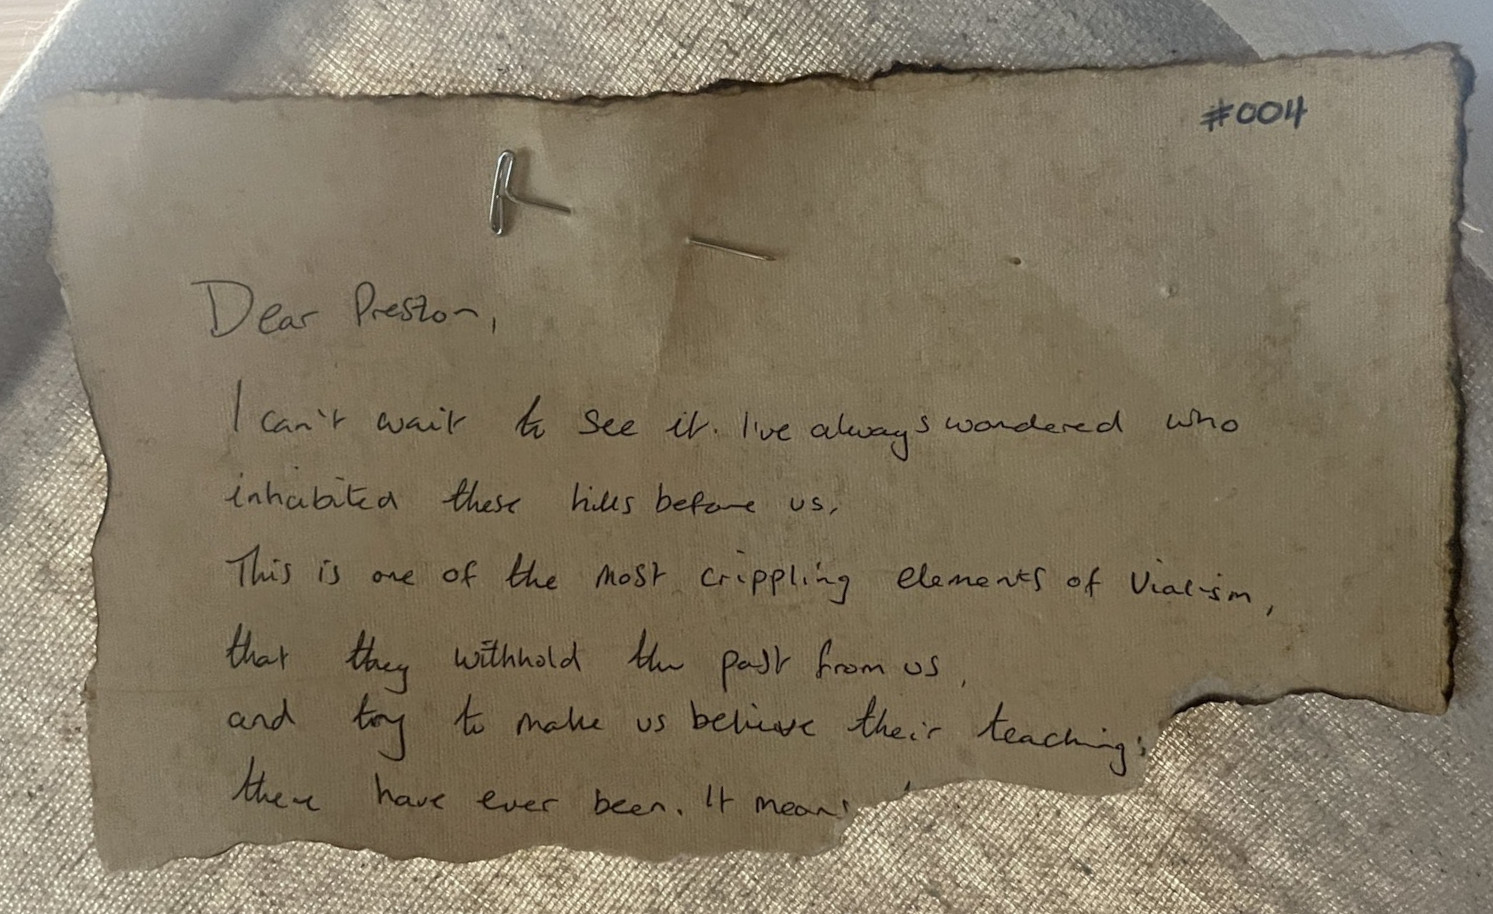 #004
Dear Preston,
I can't wait to see it. I've always wondered who
inhabited these hills before us.
This is one of the most crippling elements of Vialism,
that they withhold the past from us,
and try to make us believe their teachings
there have ever been. It means